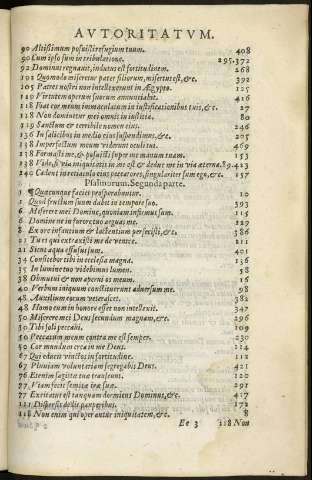 AVTORITATVM.
90 Altissimum posuisti refugium tuum. 408
90 Cum ipso sum in tribulatione. 295.372
92 Dominus regnauit, indutus est fortitudinem. 268
102 Quomodo miseretur pater filiorum, misertus est, &c. 392
105 Patres nostri non intellexerunt in Ægypto. 125
110 Virtutem operum suorum annuntiabit. 416
118 Fiat cor meum immaculatum in iustificationibus tuis, &c. 27
128 Non dominetur mei omnis iniustitia. 80
119 Sanctum & terribile nomen eius. 246
136 In salicibus in medio eius suspendimus, &c. 205
138 Imperfectum meum viderunt oculi tui. 469
138 Formasti me, & posuisti super me manum tuam. 153
138 Vide, si via iniquitatis in me est & deduc me in via æterna. 89.423
140 Cadent in retiaculo eius peccatores, singulariter sum ego, &c. 157
Psalmorum. Segunda parte.
¶ Quæcunque faciet prosperabuntur. 10
1 Quod fructum suum dabit in tempore suo. 393
6 Miserere mei Domine, quoniam infirmus sum. 115
6 Domine ne in furore tuo arguas me. 129
8 Ex ore infantium & lactentium perfecisti, &c. 386
21 Tu es qui extraxisti me de ventre. 211
21 Sicut aqua effusus sum. 401
34 Confitebor tibi in ecclesia magna. 136
35 In lumine tuo videbimus lumen. 58
38 Obmutui & non aperui os meum. 16
40 Verbum iniquum constituerunt aduersum me. 98
48 Auxilium eorum veterascet. 382
48 Homo cum in honore esset non intellexit. 347
50 Miserere mei Deus secundum magnam, &c. 296
50 Tibi soli peccaui. 109
50 Peccatum meum contra me est semper. 230
50 Cor mundum crea in me Deus. 214
67 Qui educit vinctos in fortitudine. 112
67 Pluuiam voluntariam segregabis Deus. 421
76 Etenim sagittæ tuæ transeunt. 120
77 Viam fecit semitæ iræ suæ. 291
77 Excitatus est tanquam dormiens Dominus, &c. 417
111 Dispersit dedit pauperibus. 172
118 Non enim qui operantur iniquitatem, &c. 8
Ee 3 118 Non